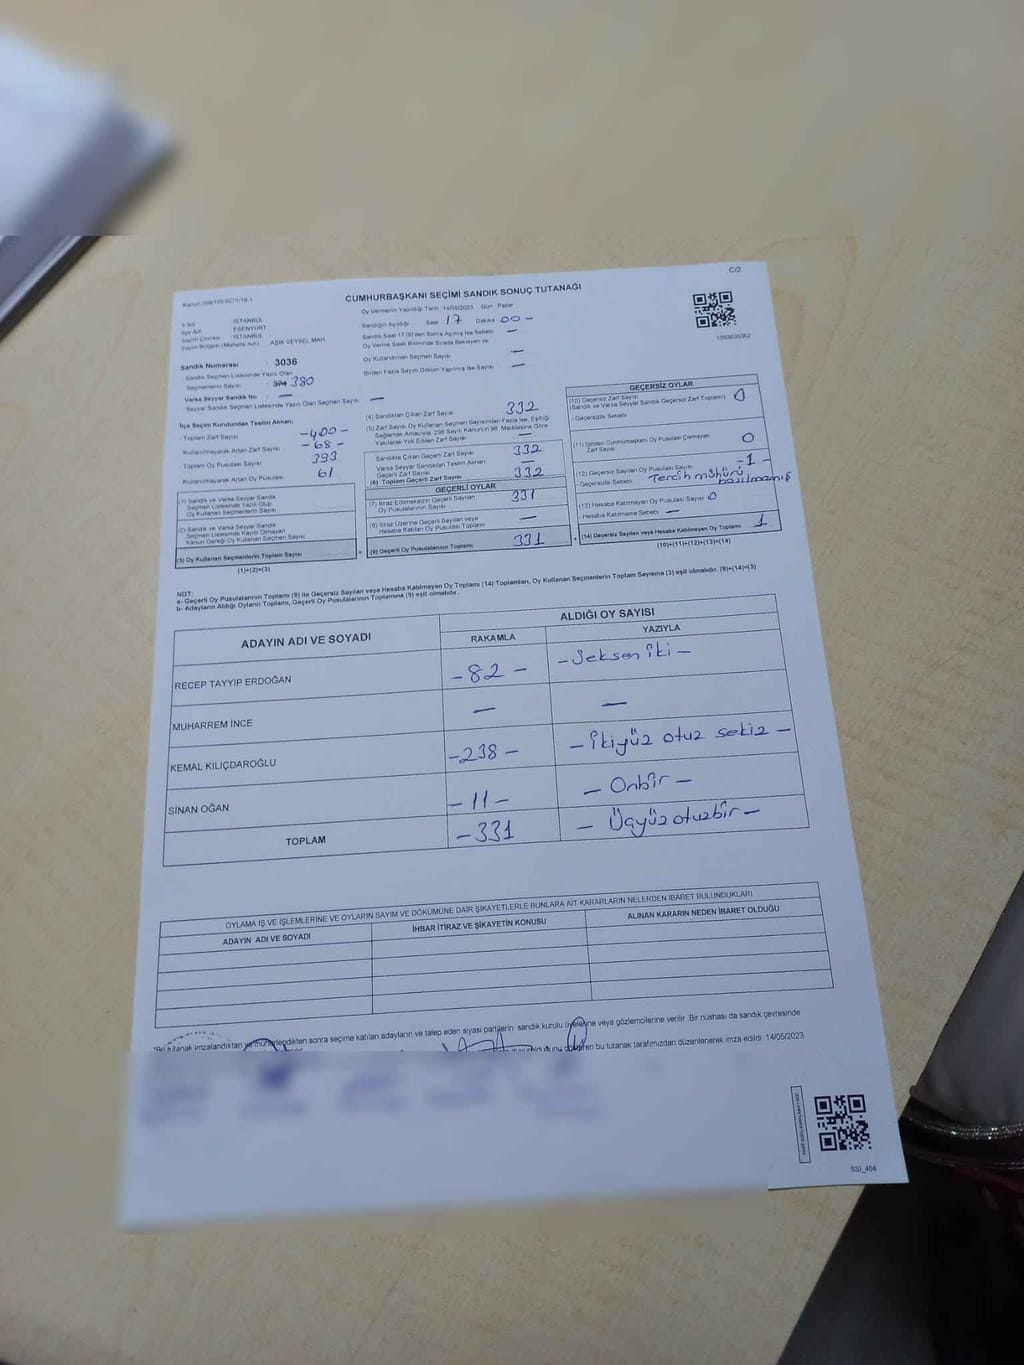 C/2
CUMHURBAŞKANI SEÇİMİ SANDIK SONUÇ TUTANAĞI
Oy Vermenin Yapıldığı Tarih 14/05/2023 Gün Pazar
İli Adı İSTANBUL
İlçe Adı ESENYURT
Seçim Çevresi İSTANBUL
Seçim Bölgesi (Mahalle Adı) AŞIK VEYSEL MAH
Sandığın Açıldığı Saat 17 Dakika 00 -
Sandık Saat 17.00'den Sonra Açılmış İse Sebebi —
Oy Verme Saati Bitiminde Sırada Bekleyen ve
Oy Kullandırılan Seçmen Sayısı —
Birden Fazla Sayım Döküm Yapılmış İse Sayısı —
Sandık Numarası : 3036
Sandık Seçmen Listesinde Yazılı Olan
Seçmenlerin Sayısı : 374 380
Varsa Seyyar Sandık No —
Seyyar Sandık Seçmen Listesinde Yazılı Olan Seçmen Sayısı —
İlçe Seçim Kurulundan Teslim Alınan;
Toplam Zarf Sayısı -400-
Kullanılmayarak Artan Zarf Sayısı - 68 -
Toplam Oy Pusulası Sayısı 393
Kullanılmayarak Artan Oy Pusulası 61
(1) Sandık ve Varsa Seyyar Sandık
Seçmen Listesinde Yazılı Olup
Oy Kullanan Seçmenlerin Sayısı
(2) Sandık ve Varsa Seyyar Sandık
Seçmen Listesinde Kayıtlı Olmayan
Kanun Gereği Oy Kullanan Seçmen Sayısı
(3) Oy Kullanan Seçmenlerin Toplam Sayısı
(1)+(2)=(3)
(4) Sandıktan Çıkan Zarf Sayısı 332
(5) Zarf Sayısı Oy Kullanan Seçmen Sayısından Fazla İse, Eşitliği
Sağlamak Amacıyla, 298 Sayılı Kanunun 98. Maddesine Göre
Yakılarak Yok Edilen Zarf Sayısı —
Sandıkta Çıkan Geçerli Zarf Sayısı 332
Varsa Seyyar Sandıktan Teslim Alınan
Geçerli Zarf Sayısı —
(6) Toplam Geçerli Zarf Sayısı 332
GEÇERLİ OYLAR
(7) İtiraz Edilmeksizin Geçerli Sayılan
Oy Pusulalarının Sayısı 331
(8) İtiraz Üzerine Geçerli Sayılan veya
Hesaba Katılan Oy Pusulası Toplamı —
(9) Geçerli Oy Pusulalarının Toplamı 331
GEÇERSİZ OYLAR
(10) Geçersiz Zarf Sayısı
(Sandık ve Varsa Seyyar Sandık Geçersiz Zarf Toplamı) 0
- Geçersizlik Sebebi
(11) İçinden Cumhurbaşkanı Oy Pusulası Çıkmayan
Zarf Sayısı 0
(12) Geçersiz Sayılan Oy Pusulası Sayısı -1-
- Geçersizlik Sebebi Tercih mühürü basılmamış
(13) Hesaba Katılmayan Oy Pusulası Sayısı 0
- Hesaba Katılmama Sebebi —
(14) Geçersiz Sayılan veya Hesaba Katılmayan Oy Toplamı 1
(10)+(11)+(12)+(13)=(14)
NOT:
a- Geçerli Oy Pusulalarının Toplamı (9) ile Geçersiz Sayılan veya Hesaba Katılmayan Oy Toplamı (14) Toplamları, Oy Kullanan Seçmenlerin Toplam Sayısına (3) eşit olmalıdır. (9)+(14)=(3)
b- Adayların Aldığı Oyların Toplamı, Geçerli Oy Pusulalarının Toplamına (9) eşit olmalıdır.
ADAYIN ADI VE SOYADI ALDIĞI OY SAYISI
RAKAMLA YAZIYLA
RECEP TAYYİP ERDOĞAN -82 - -Seksen iki -
MUHARREM İNCE — —
KEMAL KILIÇDAROĞLU -238 - - İkiyüz otuz sekiz -
SİNAN OĞAN - 11 - - Onbir -
TOPLAM -331 - Üçyüzotuzbir -
OYLAMA İŞ VE İŞLEMLERİNE VE OYLARIN SAYIM VE DÖKÜMÜNE DAİR ŞİKAYETLERLE BUNLARA AİT KARARLARIN NELERDEN İBARET BULUNDUKLARI
ADAYIN ADI VE SOYADI İHBAR İTİRAZ VE ŞİKAYETİN KONUSU ALINAN KARARIN NEDEN İBARET OLDUĞU
tutanak imzalandıktan ve mühürlendikten sonra seçime katılan adayların ve talep eden siyasi partilerin sandık kurulu üyelerine veya gözlemcilerine verilir. Bir nüshası da sandık çevresinde
bu tutanak tarafımızdan düzenlenerek imza edildi. 14/05/2023
SSI_404